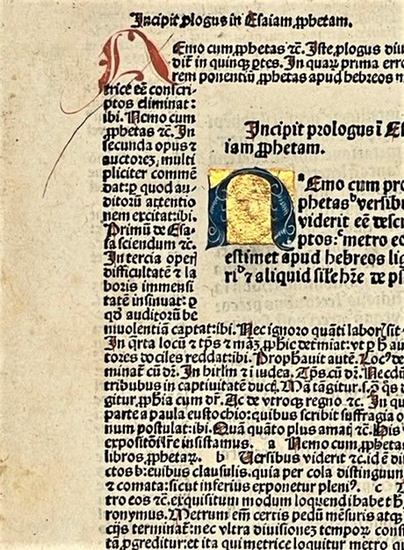 Incipit ꝓlogus in Esaiam ꝓphetam.
NEmo cum ꝓphetas ⁊c̃. Iste ꝓlogus diui
dit̃ in quinqꝫ ꝑtes. In quaꝝ prima erro
rem ponentiũ ꝓphetas apud hebreos m
trice eẽ conscri
ptos eliminat:
ibi. Nemo cum
ꝓphetas ⁊c̃. In
secunda opus ⁊
auctorez, multi
pliciter commẽ
dat: ꝙ quod au-
ditorũ attentio
nem excitat: ibi.
Primũ de Esa-
ia sciendum ⁊c̃.
In tercia operis
difficultatẽ ⁊ la
boris immensi
tatẽ insinuat: ꝑ
qð auditorũ be
niuolentiam captat: ibi. Nec ignoro quãti labor̃ sit
In q̃rta locũ ⁊ tp̃s
tores dociles reddat: ibi. Prophauit autẽ.
minat̃ cũ In hirlm̃ ⁊ i iudea. Tp̃s cũ Necdũ
tribubus in captiuitatẽ duct
Ac de vtroqꝫ regno ⁊c̃. In qu
parte a paula eustochio: quibus scribit suffragia o
num postulat: ibi. Quã quãto plus amat̃ ⁊c̃. His
insistamus. a Nemo cum ꝓphetas
libros ꝓphetaꝝ. b Versibus viderit ⁊c̃. id ẽ di
ctos breuibus clausulis. quia per cola distinguun
⁊ comata: sicut inferius exponet̃ pleniꝰ. c
tro eos ⁊c̃. exquisitum modum loquendi
ronymus. Metrum em̃ certis pedũ mẽsuris
terminat̃: nec vltra diuisionez tempoꝝ const
ta ꝓgreditur: et ita qui metrice loquitur metro
Incipit prologus ĩ Es
iam ꝓphetam.
NEmo cum pro
phetas versibus
viderit eẽ descri
ptos: metro eos
estimet apud hebreos lig
ri ⁊ aliquid sil'e h̃re